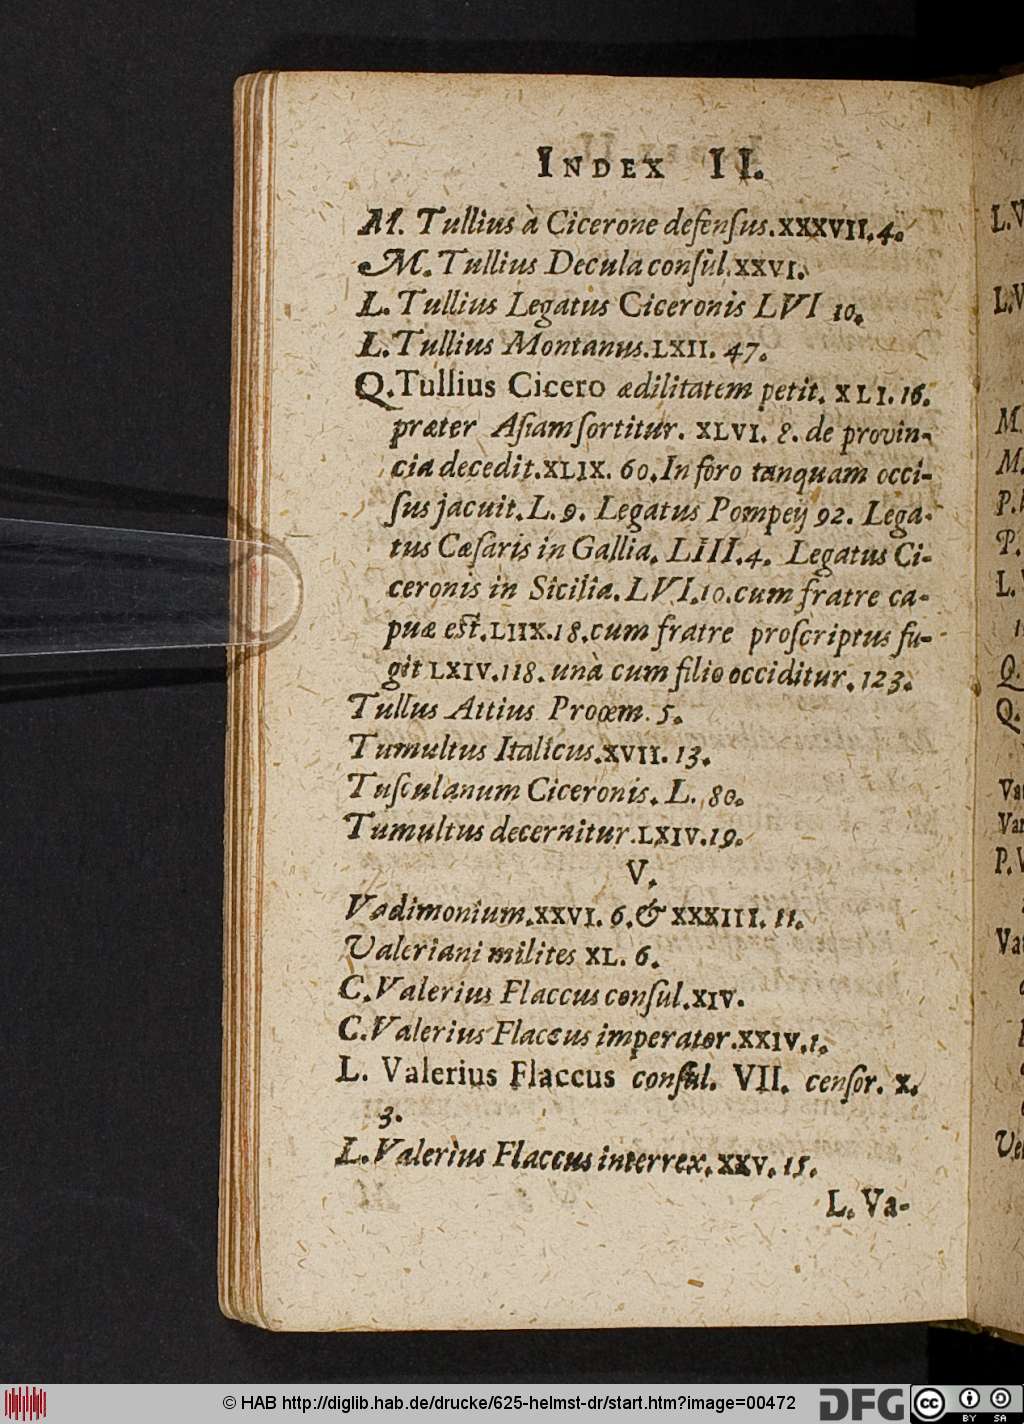 INDEX II.
M. Tullius à Cicerone defenſus.XXXVII.4.
M. Tullius Decula conſul.XXVI.
L. Tullius Legatus Ciceronis LVI 10.
L. Tullius Montanus.LXII. 47.
Q. Tullius Cicero ædilitatem petit. XLI. 16.
præter Aſiam ſortitur. XLVI. 8. de provin-
cia decedit.XLIX. 60. In foro tanquam occi-
ſus jacuit. L. 9. Legatus Pompeij 92. Lega-
tus Cæſaris in Gallia. LIII.4. Legatus Ci-
ceronis in Sicilia. LVI.10.cum fratre ca-
puæ eſt.LIIX.18.cum fratre proſcriptus fu-
git LXIV.118. unà cum filio occiditur. 123.
Tullus Attius Proœm. 5.
Tumultus Italicus.XVII. 13.
Tuſculanum Ciceronis. L. 80.
Tumultus decernitur.LXIV.19.
V.
Vadimonium.XXVI. 6.& XXXIII. 11.
Valeriani milites XL. 6.
C. Valerius Flaccus conſul.XIV.
C. Valerius Flaccus imperator.XXIV.1.
L. Valerius Flaccus conſul. VII. cenſor. X.
3.
L. Valerius Flaccus interrex. XXV. 15.
L. Va-
L.V
L.V
M.
M.
P.
P.
L.
Q.
Q.
Va
Var
P.V
Va
Ve
© HAB http://diglib.hab.de/drucke/625-helmst-dr/start.htm?image=00472
DFG
cc BY SA